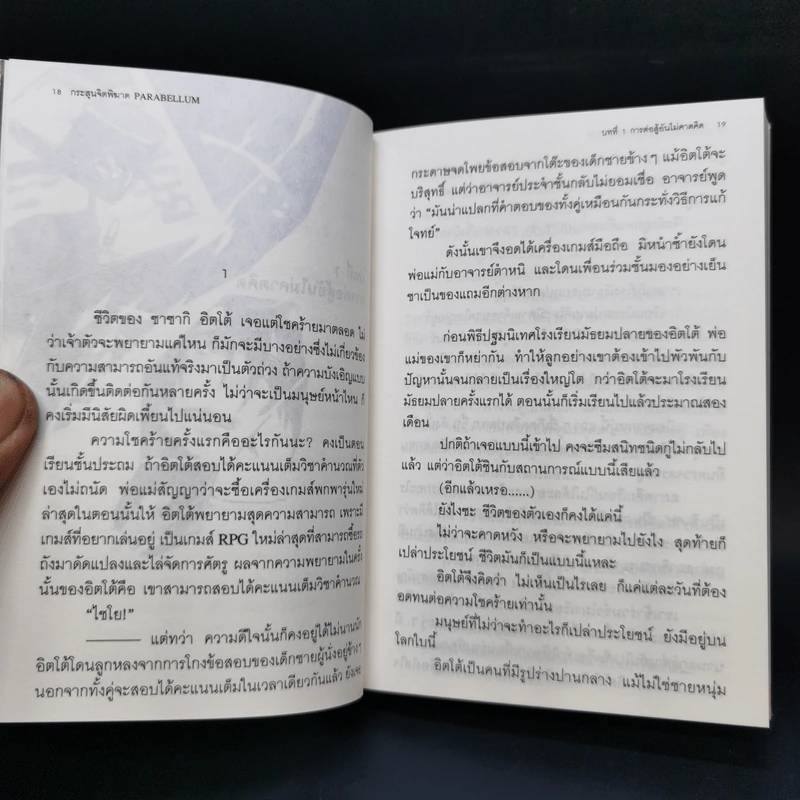 18 กระสุนจิตพิฆาต PARABELLUM
1
ชีวิตของ ซาซากิ อิตโต้ เจอแต่โชคร้ายมาตลอด ไม่
ว่าเจ้าตัวจะพยายามแค่ไหน ก็มักจะมีบางอย่างซึ่งไม่เกี่ยวข้อง
กับความสามารถอันแท้จริงมาเป็นตัวถ่วง ถ้าความบังเอิญแบบ
นั้นเกิดขึ้นติดต่อกันหลายครั้ง ไม่ว่าจะเป็นมนุษย์หน้าไหน ก็
คงเริ่มมีนิสัยผิดเพี้ยนไปแน่นอน
ความโชคร้ายครั้งแรกคืออะไรกันนะ? คงเป็นตอน
เรียนชั้นประถม ถ้าอิตโต้สอบได้คะแนนเต็มวิชาคำนวณที่ตัว
เองไม่ถนัด พ่อแม่สัญญาว่าจะซื้อเครื่องเกมส์พกพารุ่นใหม่
ล่าสุดในตอนนั้นให้ อิตโต้พยายามสุดความสามารถ เพราะมี
เกมส์ที่อยากเล่นอยู่ เป็นเกมส์ RPG ใหม่ล่าสุดที่สามารถซื้อรถ
ถังมาดัดแปลงและไล่จัดการศัตรู ผลจากความพยายามในครั้ง
นั้นของอิตโต้คือ เขาสามารถสอบได้คะแนนเต็มวิชาคำนวณ
“ไชโย!”
——— แต่ทว่า ความดีใจนั้นก็คงอยู่ได้ไม่นานนัก
อิตโต้โดนลูกหลงจากการโกงข้อสอบของเด็กชายผู้นั่งอยู่ข้างๆ
นอกจากทั้งคู่จะสอบได้คะแนนเต็มในเวลาเดียวกันแล้ว ยังเจอ
บทที่ 1 การต่อสู้อันไม่คาดคิด 19
กระดาษจดโพยข้อสอบจากโต๊ะของเด็กชายข้างๆ แม้อิตโต้จะ
บริสุทธิ์ แต่ว่าอาจารย์ประจำชั้นกลับไม่ยอมเชื่อ อาจารย์พูด
ว่า “มันน่าแปลกที่คำตอบของทั้งคู่เหมือนกันกระทั่งวิธีการแก้
โจทย์”
ดังนั้นเขาจึงอดได้เครื่องเกมส์มือถือ มิหนำซ้ำยังโดน
พ่อแม่กับอาจารย์ตำหนิ และโดนเพื่อนร่วมชั้นมองอย่างเย็น
ชาเป็นของแถมอีกต่างหาก
ก่อนพิธีปฐมนิเทศโรงเรียนมัธยมปลายของอิตโต้ พ่อ
แม่ของเขาก็หย่ากัน ทำให้ลูกอย่างเขาต้องเข้าไปพัวพันกับ
ปัญหานั้นจนกลายเป็นเรื่องใหญ่โต กว่าอิตโต้จะมาโรงเรียน
มัธยมปลายครั้งแรกได้ ตอนนั้นก็เริ่มเรียนไปแล้วประมาณสอง
เดือน
ปกติถ้าเจอแบบนี้เข้าไป คงจะซึมสนิทชนิดกู่ไม่กลับไป
แล้ว แต่ว่าอิตโต้ชินกับสถานการณ์แบบนี้เสียแล้ว
(อีกแล้วเหรอ......)
ยังไงซะ ชีวิตของตัวเองก็คงได้แค่นี้
ไม่ว่าจะคาดหวัง หรือจะพยายามไปยังไง สุดท้ายก็
เปล่าประโยชน์ ชีวิตมันก็เป็นแบบนี้แหละ
อิตโต้จึงคิดว่า ไม่เห็นเป็นไรเลย ก็แค่แต่ละวันที่ต้อง
อดทนต่อความโชคร้ายเท่านั้น
มนุษย์ที่ไม่ว่าจะทำอะไรก็เปล่าประโยชน์ ยังมีอยู่บน
โลกใบนี้
อิตโต้เป็นคนที่มีรูปร่างปานกลาง แม้ไม่ใช่ชายหนุ่ม